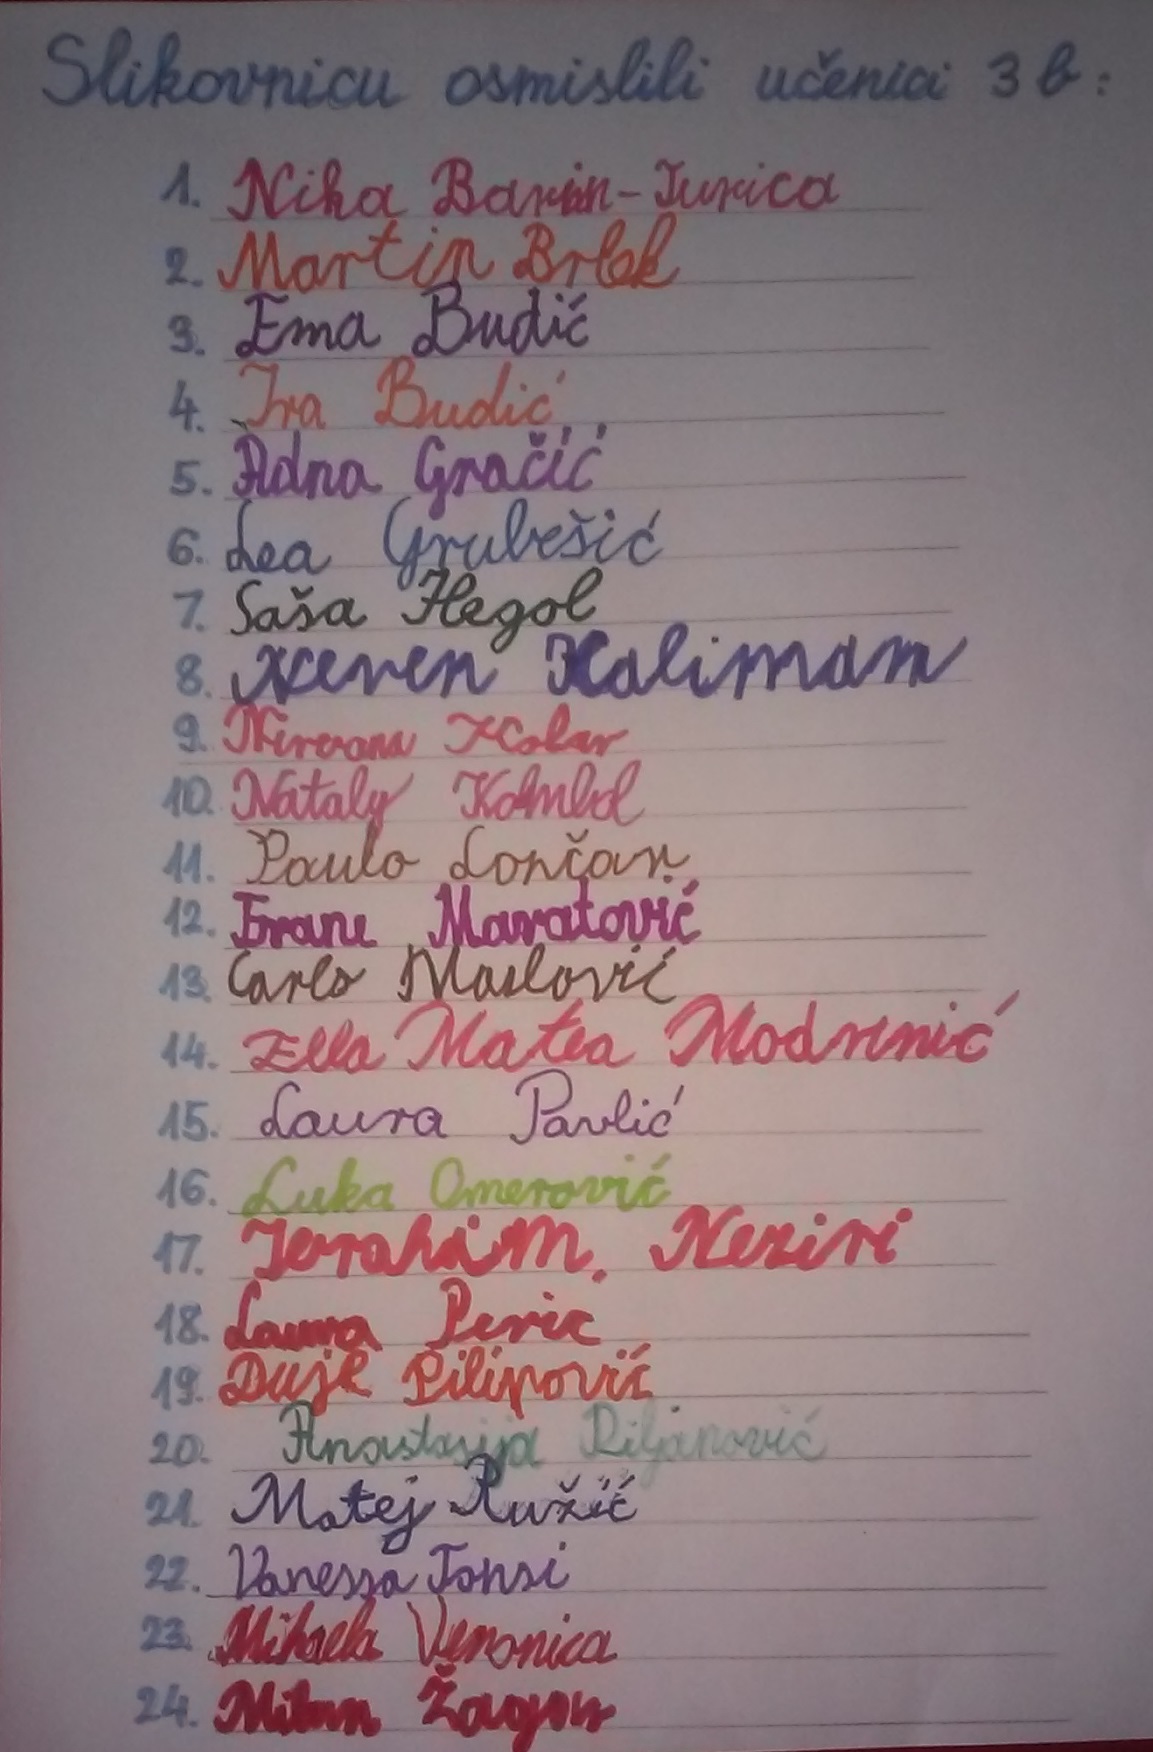 Slikovnicu osmislili učenici 3 b:
1. Nika Barun-Jurica
2. Martin Brlek
3. Ema Budić
4. Ira Budić
5. Adna Gračić
6. Lea Grubešić
7. Saša Hegol
8. Keren Kaliman
9. Nirvana Kolar
10. Nataly Kombol
11. Paulo Lončar
12. Frane Maratović
13. Carlo Maslović
14. Ella Matea Modrinić
15. Laura Pavlić
16. Luka Omerović
17. Ibrahim. Neziri
18. Laura Peric
19. Duje Pilipović
20. Anastasija Piljanović
21. Matej Ružić
22. Vanessa Tonsi
23. Mihaela Veronica
24. Milan Žagar